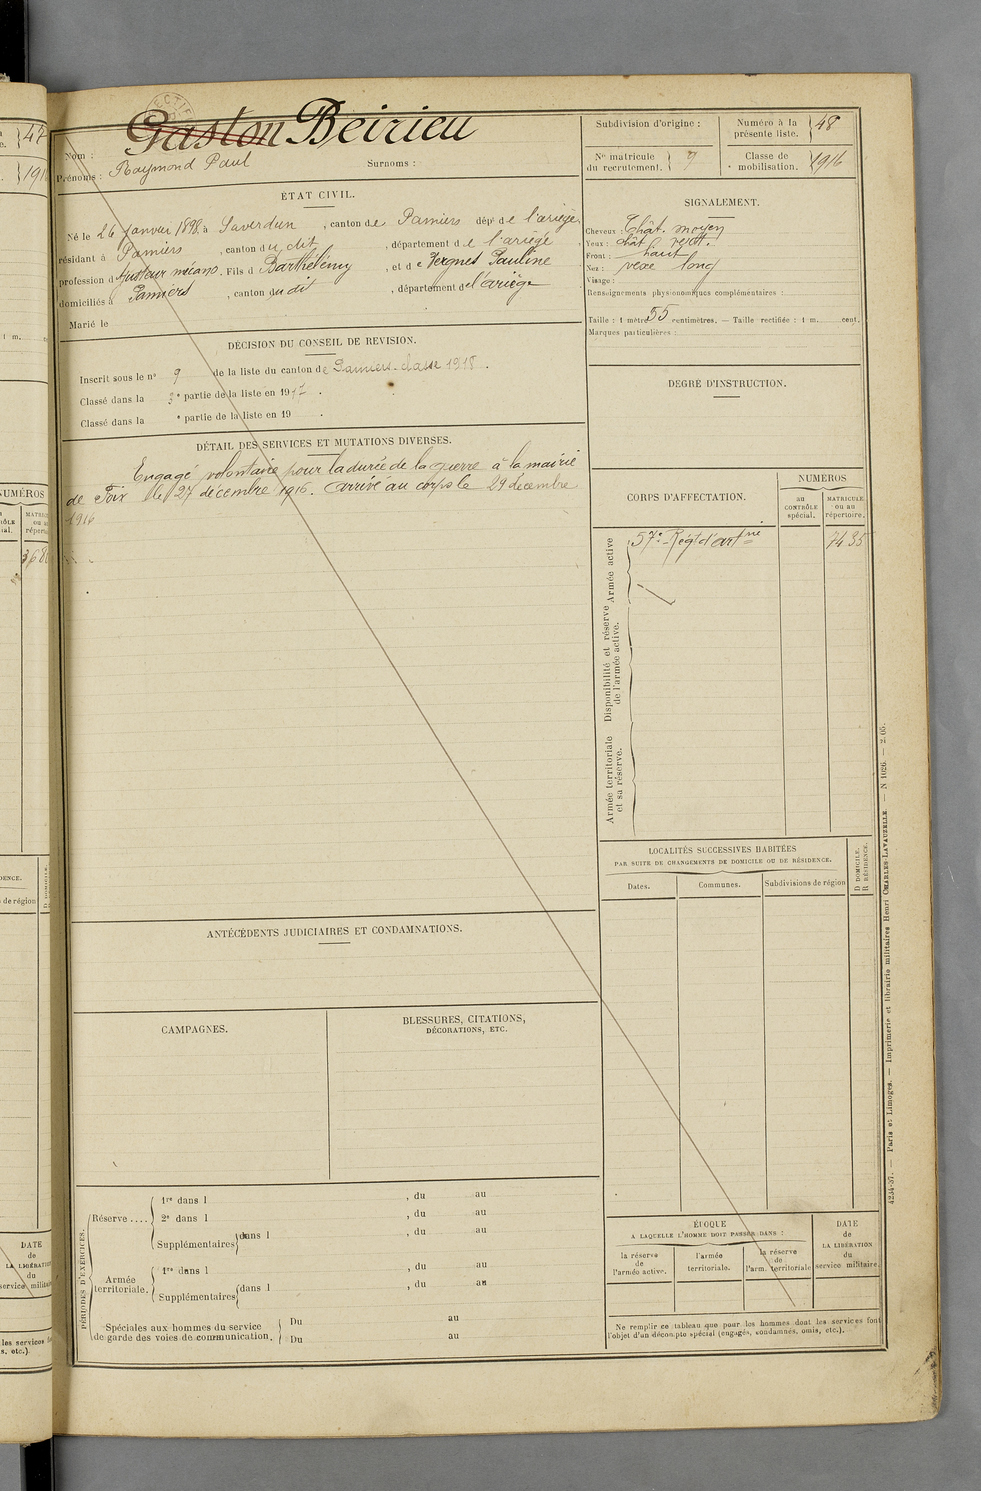 Gaston Beirieu
Nom :
Prénoms : Raymond Paul Surnoms :
ÉTAT CIVIL.
Né le 26 janvier 1898 à Saverdun, canton de Pamiers dépt de l'ariège,
résidant à Pamiers, canton du dit, département de l'ariège
profession d'ajusteur mécano. Fils d Barthélémy, et de Vergnes Pauline
domiciliés à Pamiers, canton du dit, département de l'ariège
Marié le
DÉCISION DU CONSEIL DE REVISION.
Inscrit sous le n° 9 de la liste du canton de Pamiers classe 1918.
Classé dans la 3e partie de la liste en 1917.
Classé dans la e partie de la liste en 19 .
DÉTAIL DES SERVICES ET MUTATIONS DIVERSES.
Engagé volontaire pour la durée de la guerre à la mairie
de Foix le 27 décembre 1916. arrivé au corps le 29 décembre
1916
ANTÉCÉDENTS JUDICIAIRES ET CONDAMNATIONS.
CAMPAGNES.
BLESSURES, CITATIONS,
DÉCORATIONS, ETC.
PÉRIODES D'EXERCICES.
Réserve ....
1re dans l , du au
2e dans l , du au
Supplémentaires dans l , du au
Armée
territoriale.
1re dans l , du au
Supplémentaires dans l , du au
Spéciales aux hommes du service
de garde des voies de communication.
Du au
Du au
Subdivision d'origine :
Numéro à la
présente liste. 48
N° matricule
du recrutement. 9
Classe de
mobilisation. 1916
SIGNALEMENT.
Cheveux : Chât. moyen
Yeux : chât.
Front : haut
Nez : long
Visage :
Renseignements physionomiques complémentaires :
Taille : 1 mètre 55 centimètres. — Taille rectifiée : 1 m. cent.
Marques particulières :
DEGRÉ D'INSTRUCTION.
CORPS D'AFFECTATION.
NUMÉROS
au
CONTRÔLE
spécial.
MATRICULE
ou au
répertoire.
57e Régt d'artrie
7435
Armée active
Disponibilité et réserve
de l'armée active.
Armée territoriale
et sa réserve.
LOCALITÉS SUCCESSIVES HABITÉES
PAR SUITE DE CHANGEMENTS DE DOMICILE OU DE RÉSIDENCE.
D DOMICILE.
R RÉSIDENCE.
Dates. Communes. Subdivisions de région
ÉPOQUE
A LAQUELLE L'HOMME DOIT PASSER DANS :
la réserve
de
l'armée active.
l'armée
territoriale.
la réserve
de
l'arm. territoriale
DATE
de
LA LIBÉRATION
du
service militaire.
Ne remplir ce tableau que pour les hommes dont les services font
l'objet d'un décompte spécial (engagés, condamnés, omis, etc.).
4234-37. — Paris et Limoges. — Imprimerie et librairie militaires Henri CHARLES-LAVAUZELLE. — N 1026. — 2.05.